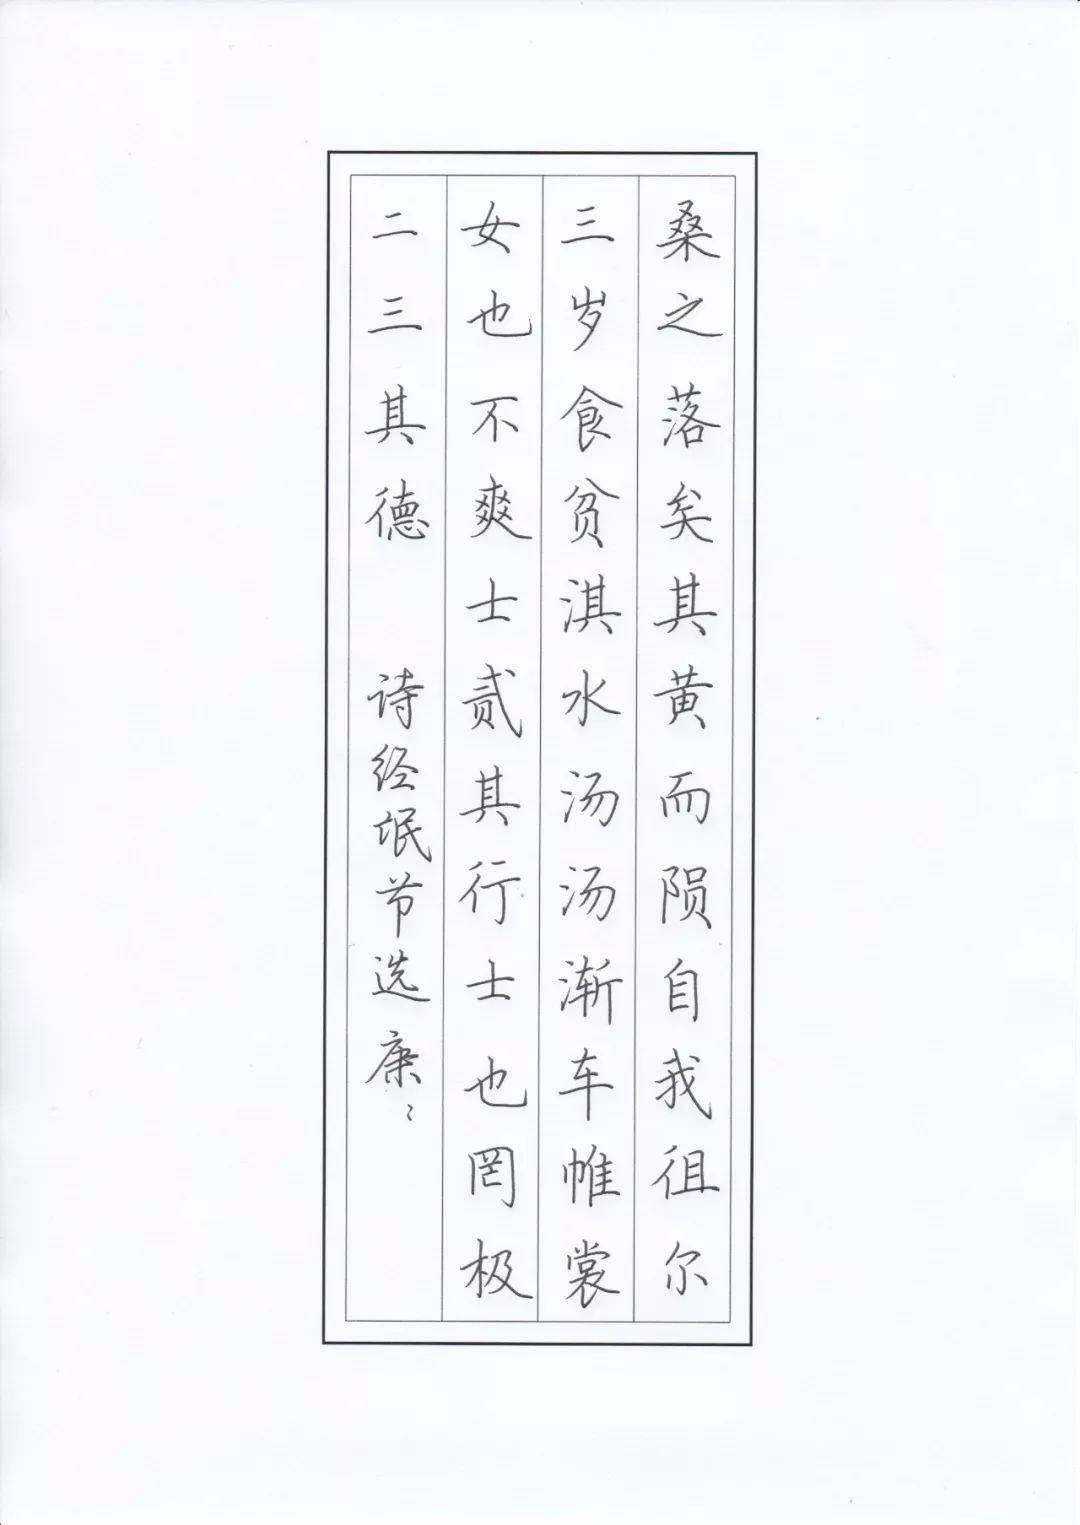 桑之落矣其黄而陨自我徂尔
三岁食贫淇水汤汤渐车帷裳
女也不爽士贰其行士也罔极
二三其德 诗经氓节选康：